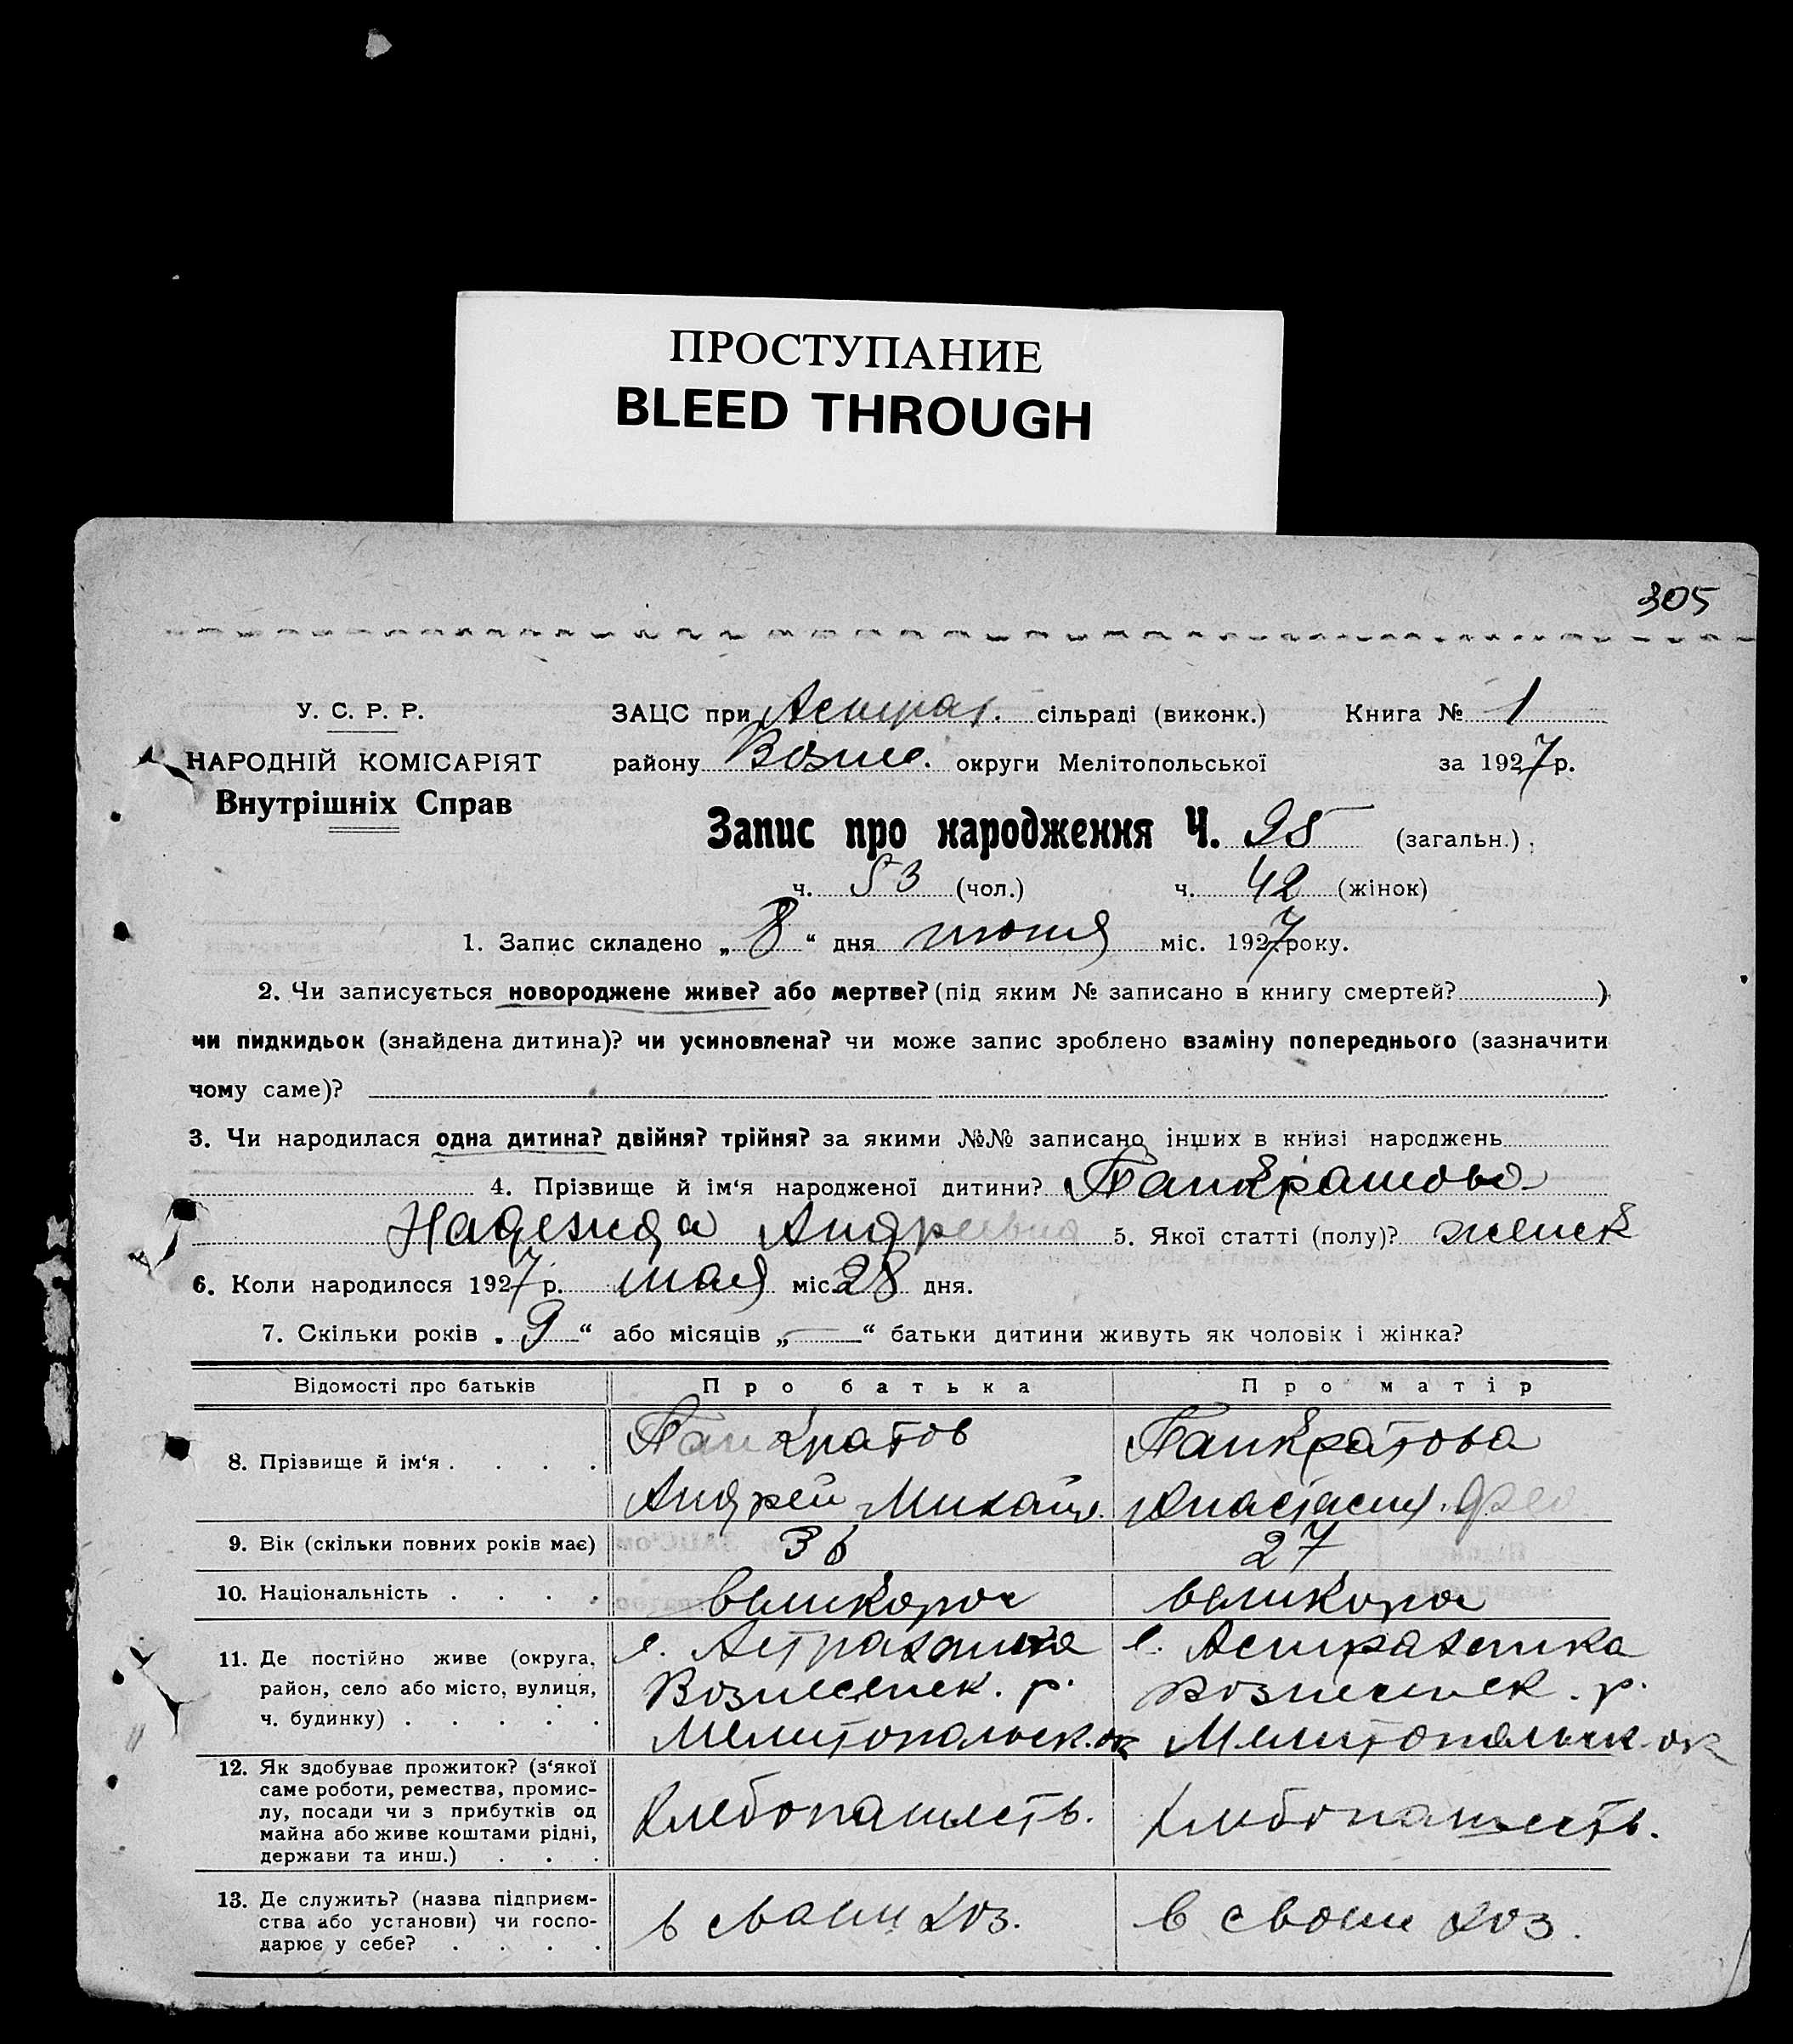 ПРОСТУПАНИЕ
BLEED THROUGH
305
У. С. Р. Р.
НАРОДНІЙ КОМІСАРІЯТ
Внутрішніх Справ
ЗАЦС при Астрах. сільраді (виконк.) Книга № 1
району Возне. округи Мелітопольської за 1927 р.
Запис про народження Ч. 95 (загальн.)
ч. 53 (чол.) ч. 42 (жінок)
1. Запис складено „8“ дня июня міс. 1927 року.
2. Чи записується новороджене живе? або мертве? (під яким № записано в книгу смертей? )
чи пидкидьок (знайдена дитина)? чи усиновлена? чи може запис зроблено взаміну попереднього (зазначити
чому саме)?
3. Чи народилася одна дитина? двійня? трійня? за якими №№ записано інших в книзі народжень
4. Прізвище й ім‘я народженої дитини? Панкратова
Надежда Андреевна 5. Якої статті (полу)? женск
6. Коли народилося 1927 р. мая міс. 28 дня.
7. Скільки років „9“ або місяців „—“ батьки дитини живуть як чоловік і жінка?
Відомості про батьків Про батька Про матір
8. Прізвище й ім‘я . . . . Панкратов Панкратова
Андрей Михайл. Анастасия Фео
9. Вік (скільки повних років має) 36 27
10. Національність . . . . великорос великорос
11. Де постійно живе (округа, с. Астраханка с. Астраханка
район, село або місто, вулиця, Вознесенск. р. Вознесенск. р.
ч. будинку) . . . . . Мелитопольск. ок Мелитопольск. ок
12. Як здобуває прожиток? (з‘якої
саме роботи, ремества, промис-
лу, посади чи з прибутків од Хлебопашеств. Хлебопашеств.
майна або живе коштами рідні,
держави та инш.) . . .
13. Де служить? (назва підприєм-
ства або установи) чи госпо- в своим хоз. в своим хоз.
дарює у себе? . . . .